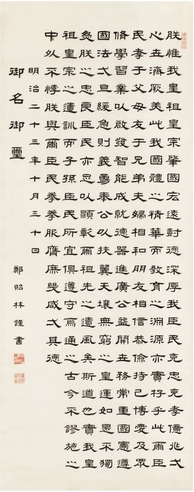 朕惟我皇祖皇宗肇國宏遠封德深厚我臣民克忠克孝億兆弌
心世濟厥美此我國體之精華而教育之淵源亦實存乎此爾臣
民孝于父母友于兄弟夫婦相和朋友相信恭儉持己博愛及眾
修學習業以啟發智能成就德器進廣公益開世務常重國憲遵
國法弌旦緩急則義勇奉公以扶翼天壤無窮之皇運如是不獨
為朕之忠良臣民亦足以顯彰爾祖先之遺風矣斯道也實我皇
祖皇宗之遺訓而子孫臣民所宜俱遵守焉通之古今不謬施之
中外不悖朕與爾臣民拳拳服膺庶幾咸弌其德
明治二十三年十月三十日
御名御璽
鄭昭林謹書